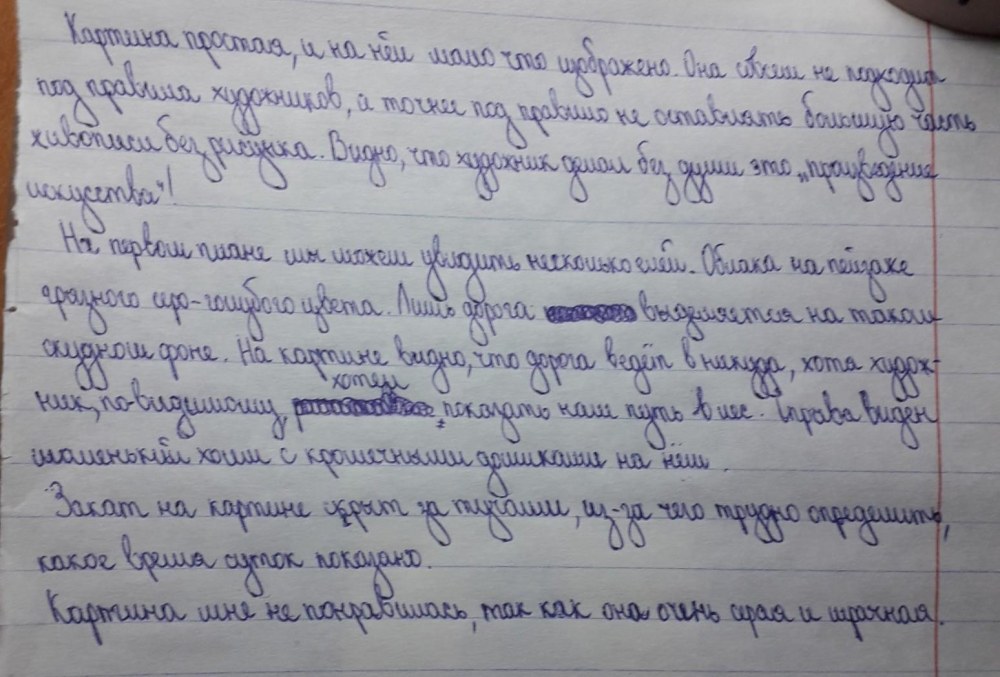 Картина простая, и на нём мало что изображено. Она совсем не подходит
под правила художников, а точнее под правило не оставлять большую часть
живописи без рисунка. Видно, что художник делал без души это „произведение
искусства"!
На первом плане мы можем увидить несколько елей. Облака на пейзаже
грязного серо-голубого цвета. Лишь дорога выделяется на таком
скудном фоне. На картине видно, что дорога ведёт в никуда, хотя худож-
ник, по-видимому, хотел показать нам путь в лес. Справа виден
маленький холм с крошечными домиками на нём.
Закат на картине укрыт за тучами, из-за чего трудно определить,
какое время суток показано.
Картина мне не понравилась, так как она очень серая и мрачная.